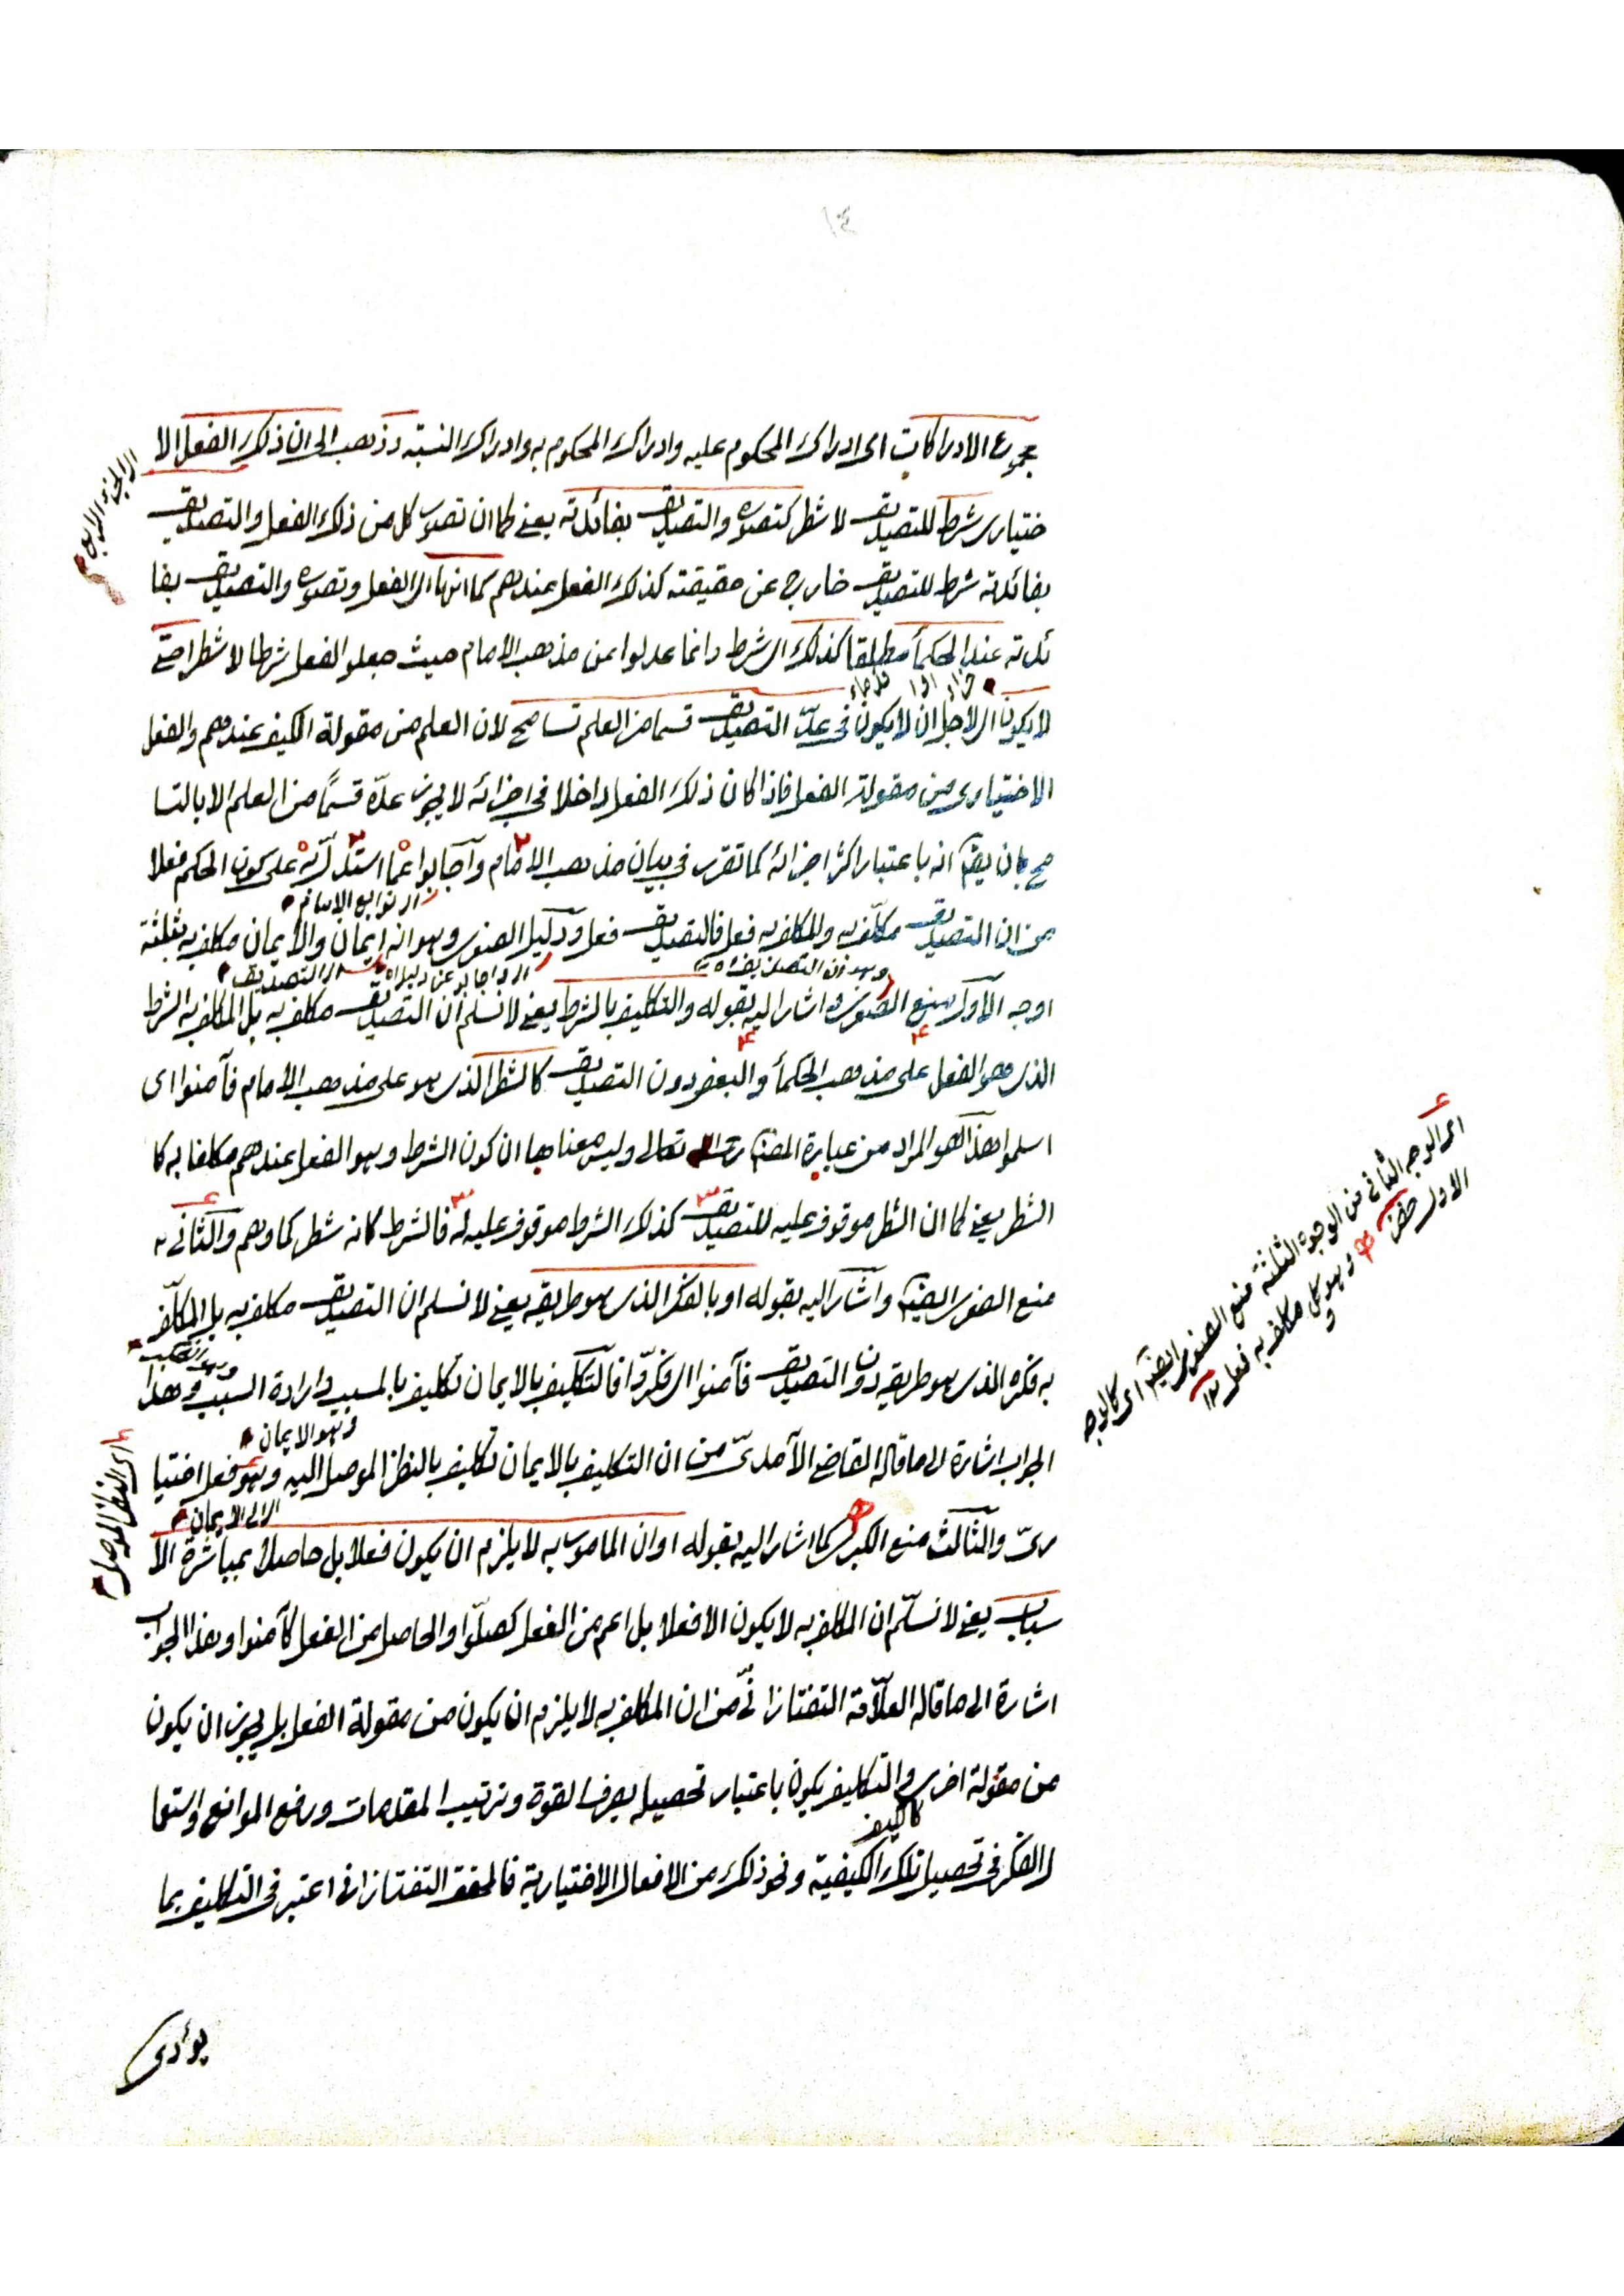 ١٠٤
مجموع الادراكات اى ادراك المحكوم عليه وادراك المحكوم به وادراك النسبة وذهب الى ان ذلك الفعل الا
ختيارى شرط للتصديق لا شطر كتصوره والتصديق بفائدته يعنى كما ان تصور كل من ذلك الفعل والتصديق
بفائدته شرط للتصديق خارج عن حقيقته كذلك الفعل عندهم كما انها اى الفعل وتصوره والتصديق بفا
ئدته عند الحكمأ مطلقا كذلك اى شرط وانما عدلوا عن مذهب الامام حيث جعلوا الفعل شرطا لا شطرا حتى
لا يكون اى لاجل ان لا يكون فى عدّ التصديق قسما من العلم تسامح لان العلم من مقولة الكيف عندهم والفعل
الاختيارى من مقولة الفعل فاذا كان ذلك الفعل داخلا فى اجزائه لا يجوز عدّه قسمًا من العلم الا بالتسا
مح بان يقم انه باعتبار اكثر اجزائه كما تقرر فى بيان مذهب الامام وآجابوا عمّا استدلّ به على كون الحكم فعلا
اى توابع الامام
من ان التصديق مكلّف به والمكلف به فعل فالتصديق فعل ودليل الصغرى وهو انه ايمان والايمان مكلف به بثلثة
وهو ان التصديق
اى اجابوا عن دليل
اى التصديق
اوجه الأول منع الصغرى واشار اليه بقوله والتكليف بالشرط يعنى لا نسلم ان التصديق مكلف به بل المكلف به الشرط
الذى هو الفعل على مذهب الحكمأ والبعض دون التصديق كالشطر الذى هو على مذهب الامام فآمنوا اى
اسلموا هذا هو المراد من عبارة المصنف تعالى وليس معناها ان كون الشرط وهو الفعل عندهم مكلفا به كا
الشطر يعنى كما ان الشطر موقوف عليه للتصديق كذلك الشرط موقوف عليه له فالشرط كانه شطر كما وهم والثانى
منع الصغرى ايضا وآشار اليه بقوله او بالفكر الذى هو طريقه يعنى لا نسلم ان التصديق مكلف به بل المكلّف
به فكره الذى هو طريقه دون التصديق فآمنوا اى فكّروا فالتكليف بالايمان تكليف بالمسبب وارادة السبب وهذا
وهو الايمان
الجواب اشارة الى ما قاله القاضى الآمدىّ من ان التكليف بالايمان تكليف بالنظر الموصل اليه وهو فعل اختيا
اى الى الايمان
رىّ والثالث منع الكبرى كما اشار اليه بقوله او ان المامور به لا يلزم ان يكون فعلا بل حاصلا بمباشرة الأ
سباب يعنى لا نسلّم ان المكلف به لا يكون الا فعلا بل اعم من الفعل كصلّوا والحاصل من الفعل كآمنوا وهذا الجواب
اشارة الى ما قاله العلّامة التفتازانىّ من ان المكلف به لا يلزم ان يكون من مقولة الفعل بل يجوز ان يكون
من مقولة اخرى والتكليف يكون باعتبار تحصيله بصرف القوة وترتيب المقدمات ورفع الموانع واستعما
كالكيف
ل الفكر فى تحصيل تلك الكيفية ونحو ذلك من الافعال الاختيارية فالمحقق التفتازانى اعتبر فى التكليف بما
يوأدى
اى الجزء الرابع
اى النظر الموصل
اى الوجه الثانى من الوجوه الثلثة منع الصغرى ايضا اى كالوجه
الاول
وهو كل مكلف به فعل ١٢